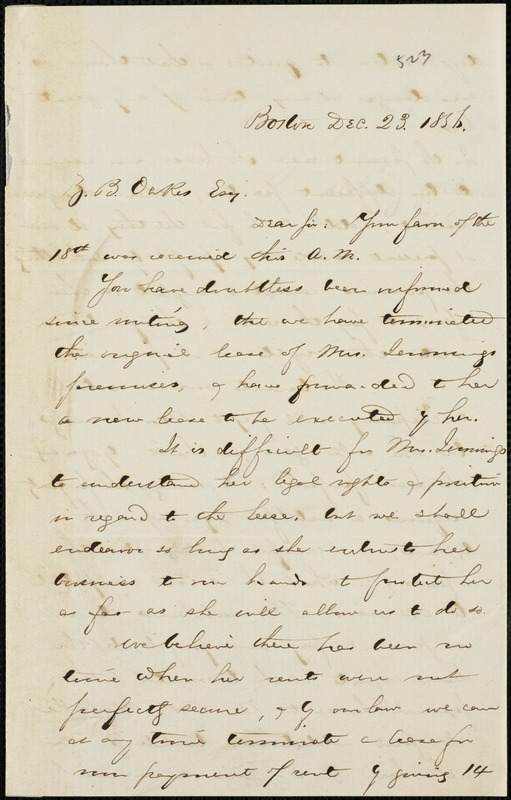 523
Boston Dec. 23. 1856.
Z. B. Oakes Esq.
Dear Sir: Your favor of the
18th was received this A.M.
You have doubtless been informed
since writing, that we have terminated
the original lease of Mrs. Jennings
premises, & have forwarded to her
a new lease to be executed by her.
It is difficult for Mrs. Jennings
to understand her legal rights & position
in regard to the lease. but we shall
endeavor so long as she submits her
business to our hands to protect her
as far as she will allow us to do so.
We believe there has been no
time when her rents were not
perfectly secure, & by our law we can
at any time terminate a lease for
non payment of rent by giving 14